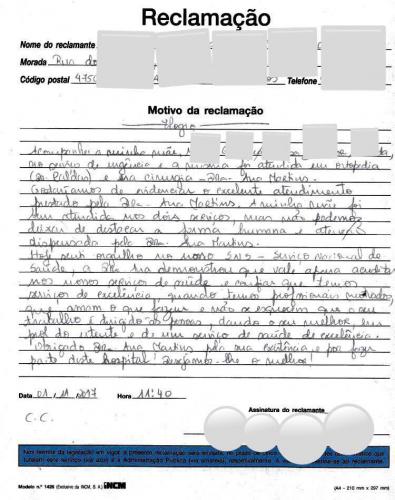 Reclamação
Nome do reclamante
Morada Rua do
Código postal 475 Telefone
Motivo da reclamação
Elogio
Acompanhei a minha mãe,
no serviço de urgência e a mesma foi atendida em ortopedia
e na cirurgia - Dra. Ana Martins.
Gostaríamos de evidenciar o excelente atendimento
prestado pela Dra. Ana Martins. A minha mãe foi
bem atendida nos dois serviços, mas não podemos
deixar de destacar a forma humana e atenção
dispensada pela Dra. Ana Martins.
Hoje senti orgulho no nosso SNS - Serviço Nacional de
Saúde, a Dra Ana demonstrou que vale apena acreditar
nos nossos serviços de saúde e confiar que temos
serviços de excelência, quando temos profissionais
que amam o que fazem e não se esquecem que o seu
trabalho é dirigido às pessoas, dando o seu melhor em
prol do utente e de um serviço de saúde de excelência.
Obrigado Dra. Ana Martins pela sua existência e por fazer
parte deste hospital! Desejamos-lhe o melhor!
Data 01, 11, 2017 Hora 11:40
Assinatura do reclamante
C.C.
Nos termos da legislação em vigor, a presente reclamação será
Modelo n.º 1426 (Exclusivo da INCM, S. A.) INCM (A4 - 210 mm x 297 mm)